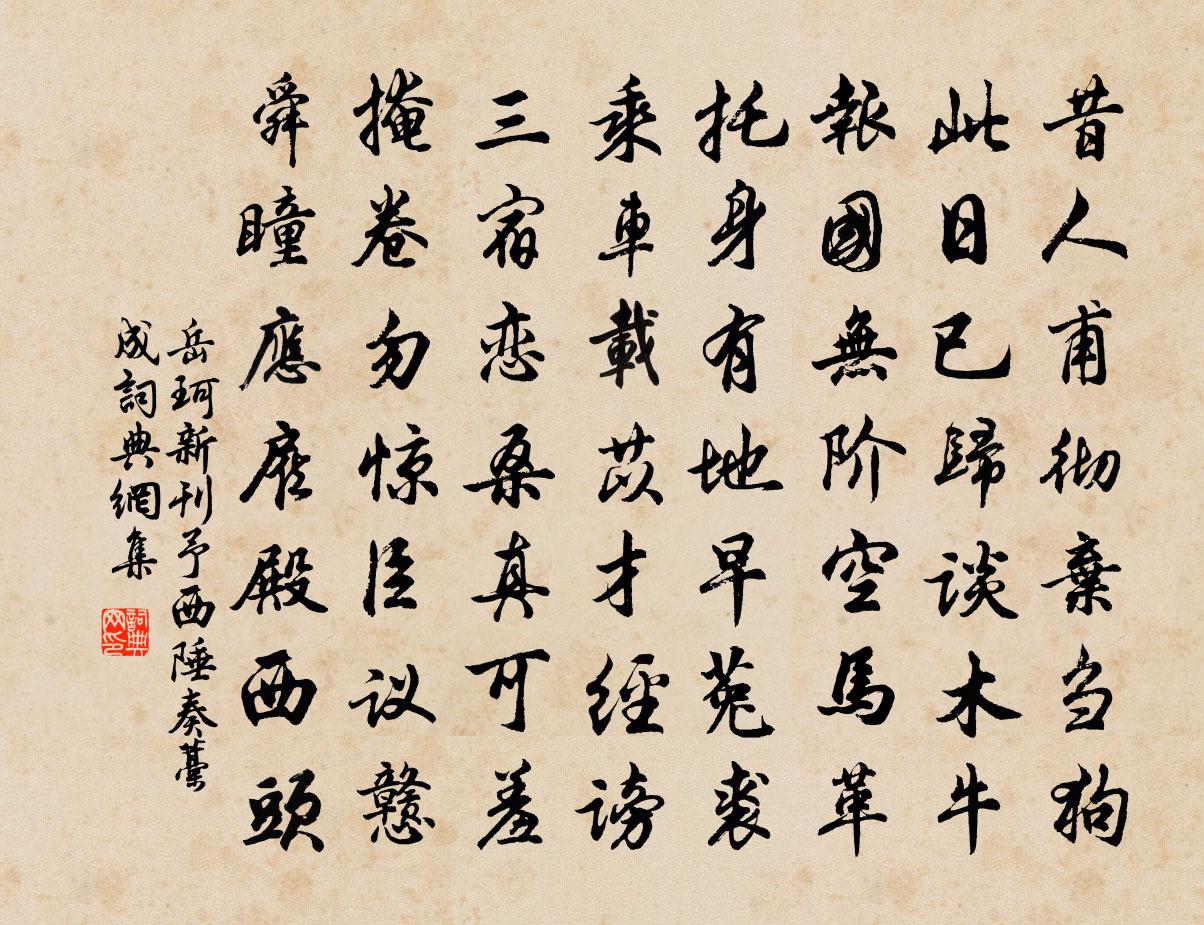 昔人甫彻棄刍狗
此日已歸談木牛
報國無阶空馬革
托身有地早菟裘
乘車載苡才經謗
三宿恋桑真可羞
掩卷勿惊臣议戇
舜瞳應殿西頭
岳珂新刊予西陲奏藁
成詞典網集
詞典網印